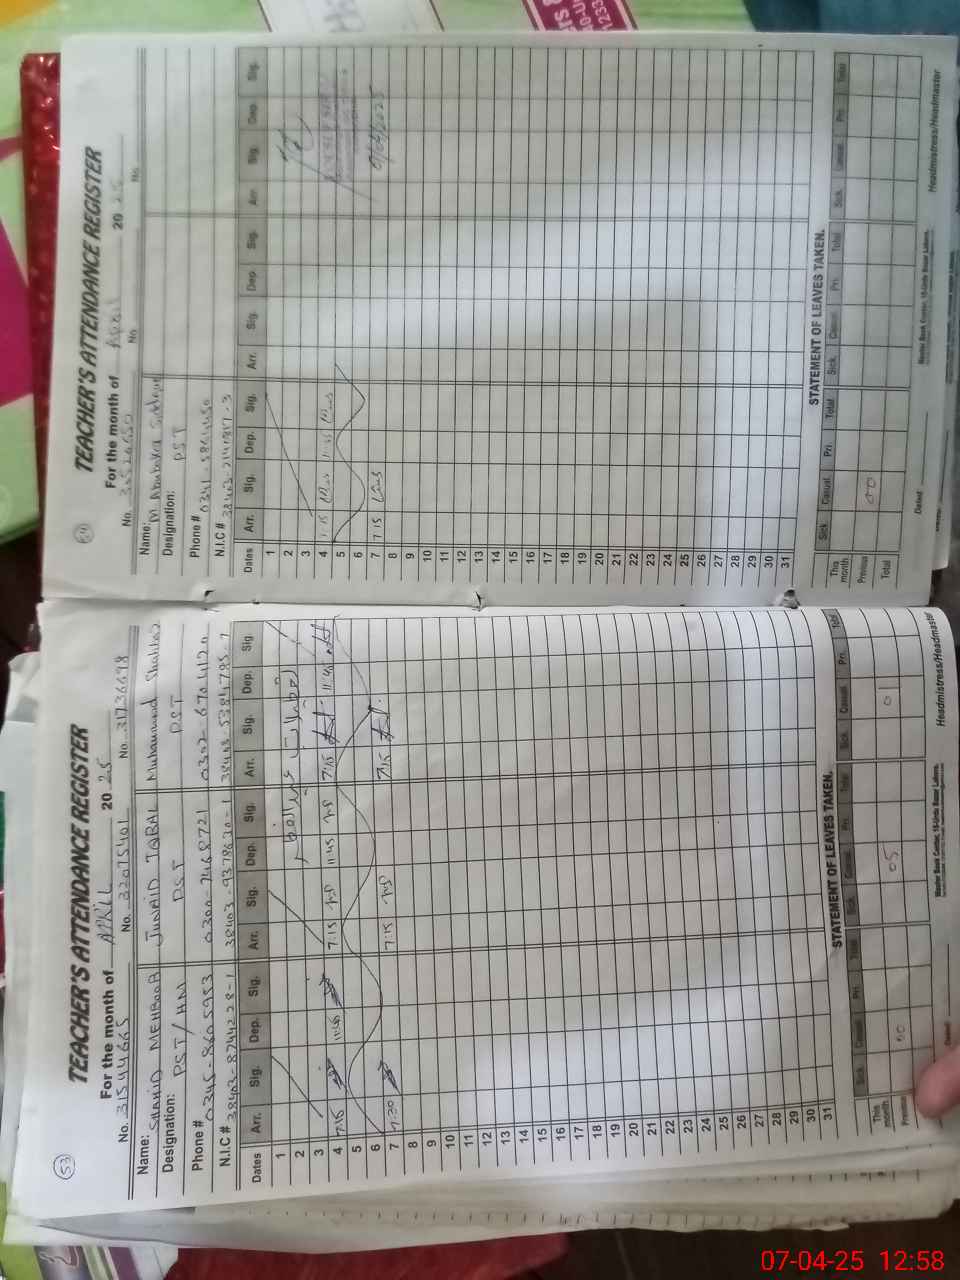 53
TEACHER'S ATTENDANCE REGISTER
For the month of APRIL 20 25
No. 31544665 No. 32075401 No. 31736698
Name: SHAHID MEHBOOB JUNAID IQBAL Muhammad Shahbaz
Designation: PST/HM PST PST
Phone # 0345-8605953 0300-7468721 0302-6704120
N.I.C # 38403-8744228-1 38403-9378670-1
Dates Arr. Sig. Dep. Sig. Arr. Sig. Dep. Sig. Arr. Sig. Dep. Sig
1
2
3
4 7:15 11:45 7:15 11:45 7:15 11:45
5
6
7 7:30 7:15 7:15
8
9
10
11
12
13
14
15
16
17
18
19
20
21
22
23
24
25
26
27
28
29
30
31
STATEMENT OF LEAVES TAKEN.
Sick Casual Pri Total Sick Casual Pri. Total Sick Casual Pri. Total
This month
Previous 00 05 01
Dated
Master Book Center, 15-Urdu Bazar Lahore.
Headmistress/Headmaster
54
TEACHER'S ATTENDANCE REGISTER
For the month of April 20 25
No. No. No.
Name: M Abubakar
Designation: PST
Phone # 0341
N.I.C # 38403
Dates Arr. Sig. Dep. Sig. Arr. Sig. Dep. Sig. Arr. Sig. Dep. Sig.
1
2
3
4 7:15 11:45
5
6
7 7:15
8
9
10
11
12
13
14
15
16
17
18
19
20
21
22
23
24
25
26
27
28
29
30
31
STATEMENT OF LEAVES TAKEN.
Sick Casual Pri Total Sick Casual Pri. Total Sick Casual Pri Total
This month
Previous 00
Total
Dated
Master Book Center, 15-Urdu Bazar Lahore.
Headmistress/Headmaster
07-04-25 12:58